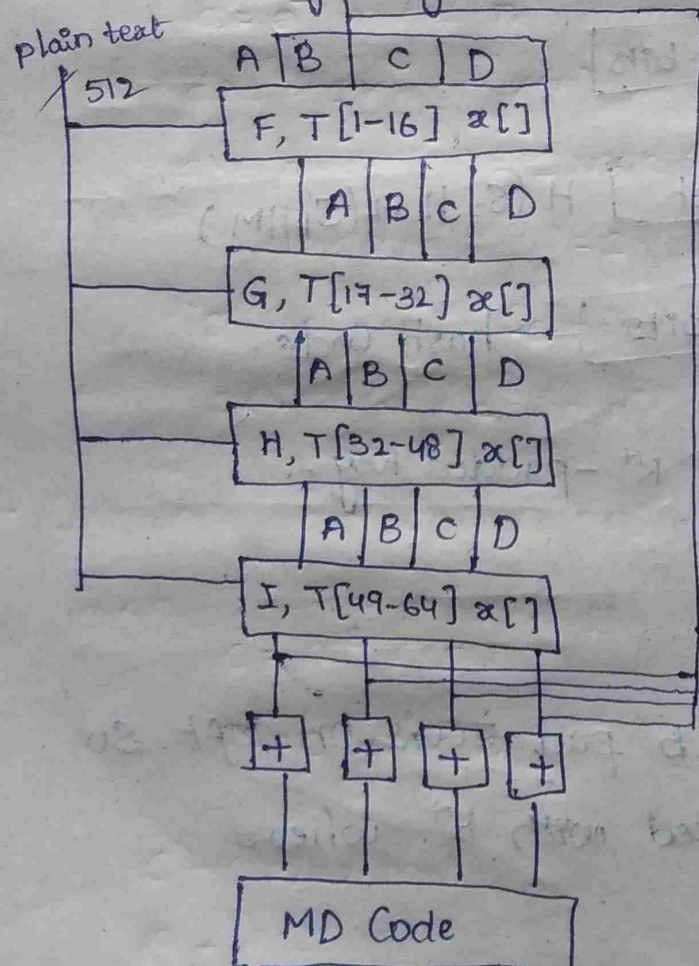 plain text
512
A B C D
F, T[1-16] x[]
A B C D
G, T[17-32] x[]
A B C D
H, T[32-48] x[]
A B C D
I, T[49-64] x[]
+ + + +
MD Code